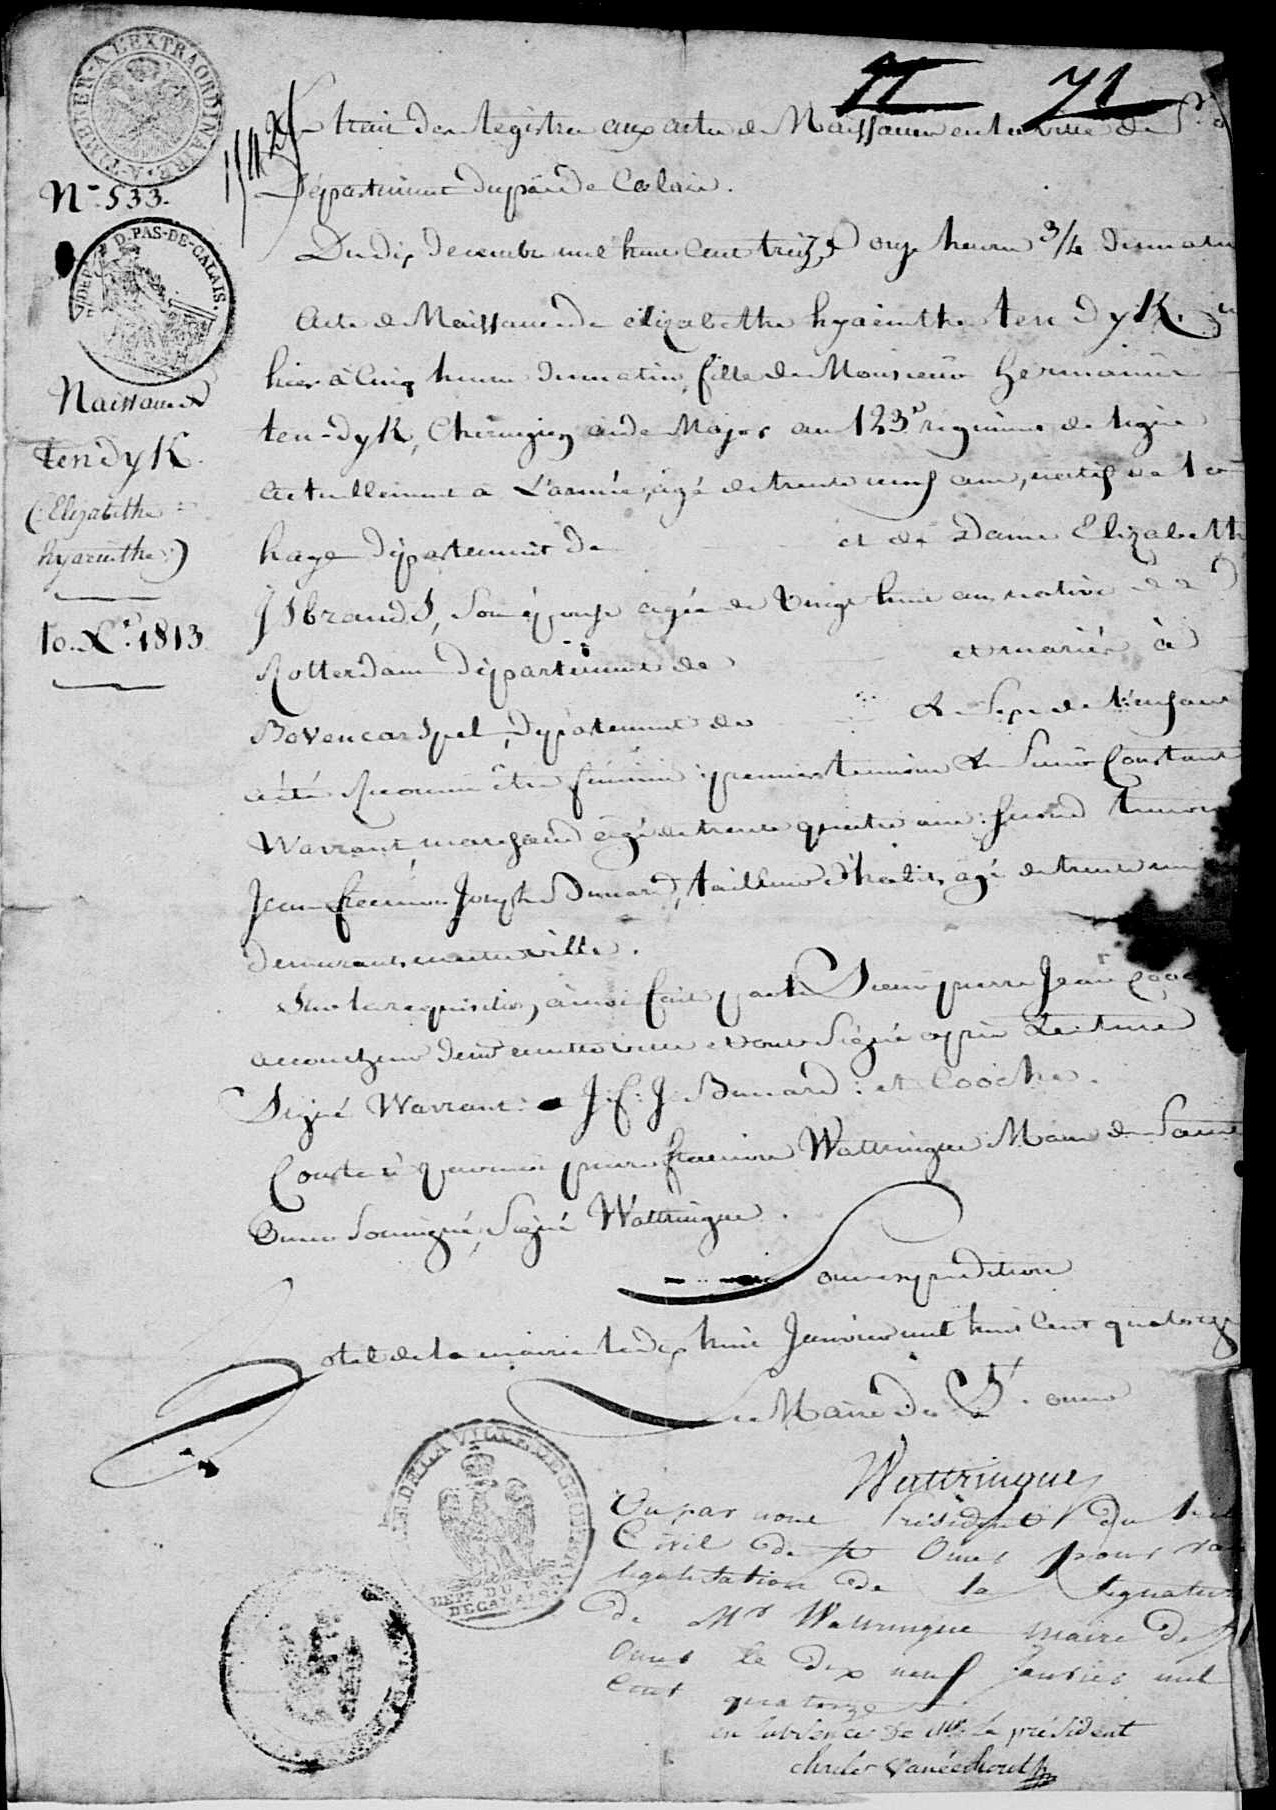 A TIMBRER-A L'EXTRAORDINAIRE
71
Extrait des Registres aux actes de Naissances en la ville de St.
Département du pas de Calais.
N° 533.
DEPT. D. PAS-DE-CALAIS.
Du dix Decembre mil huit Cent treize onze heures 3/4 du matin
Acte de Naissance de elizabethe hyacinthe ten dyK.
hier à Cinq heures du matin, fille de Monsieur hermanus
Naissances
ten-dyK, Chirurgien aide Major au 123e régiment de ligne
ten dyK.
Actuellement a L'armée, agé de trente neuf ans, natif de la
(Elizabethe
haye département de et de Dame Elizabeth
hyacinthe)
JsbrandS, Son épouse agée de Vingt huit ans native de
10. Xre. 1813
Rotterdam département de et mariés à
BoVencarSpel, département de Le Sexe de l'enfant
a été reconnu être féminin: premier temoin Le Sieur Constant
Warrant, marchand agé de trente quatre ans: second temoin
Jean Joseph Bunard, tailleur d'habits, agé de trente
demeurants en cette ville.
Sur la requisition, à moi faite par le Sieur pierre Jean
accoucheur demt en cette ville et ont Signé après Lecture
Signé Warrant: J: f: J. Bunard: et Cooche.
Constaté par moi pierre Wattringue Maire de Saint
Omer Soussigné, Signé Wattringue.
Pour expedition
hotel de la mairie le dix huit Janvier mil huit Cent quatorze
Le Maire de St. omer
DE LA VILLE DE ST OMER
DEPT. DU P. DE CALAIS
Wattringue
Vu par nous Président du
Civil de St Omer pour la
legalisation de la Signature
de Mr Wattringue maire de St
Omer le dix neuf Janvier mil
Cent quatorze
en l'absence de Mr. le président